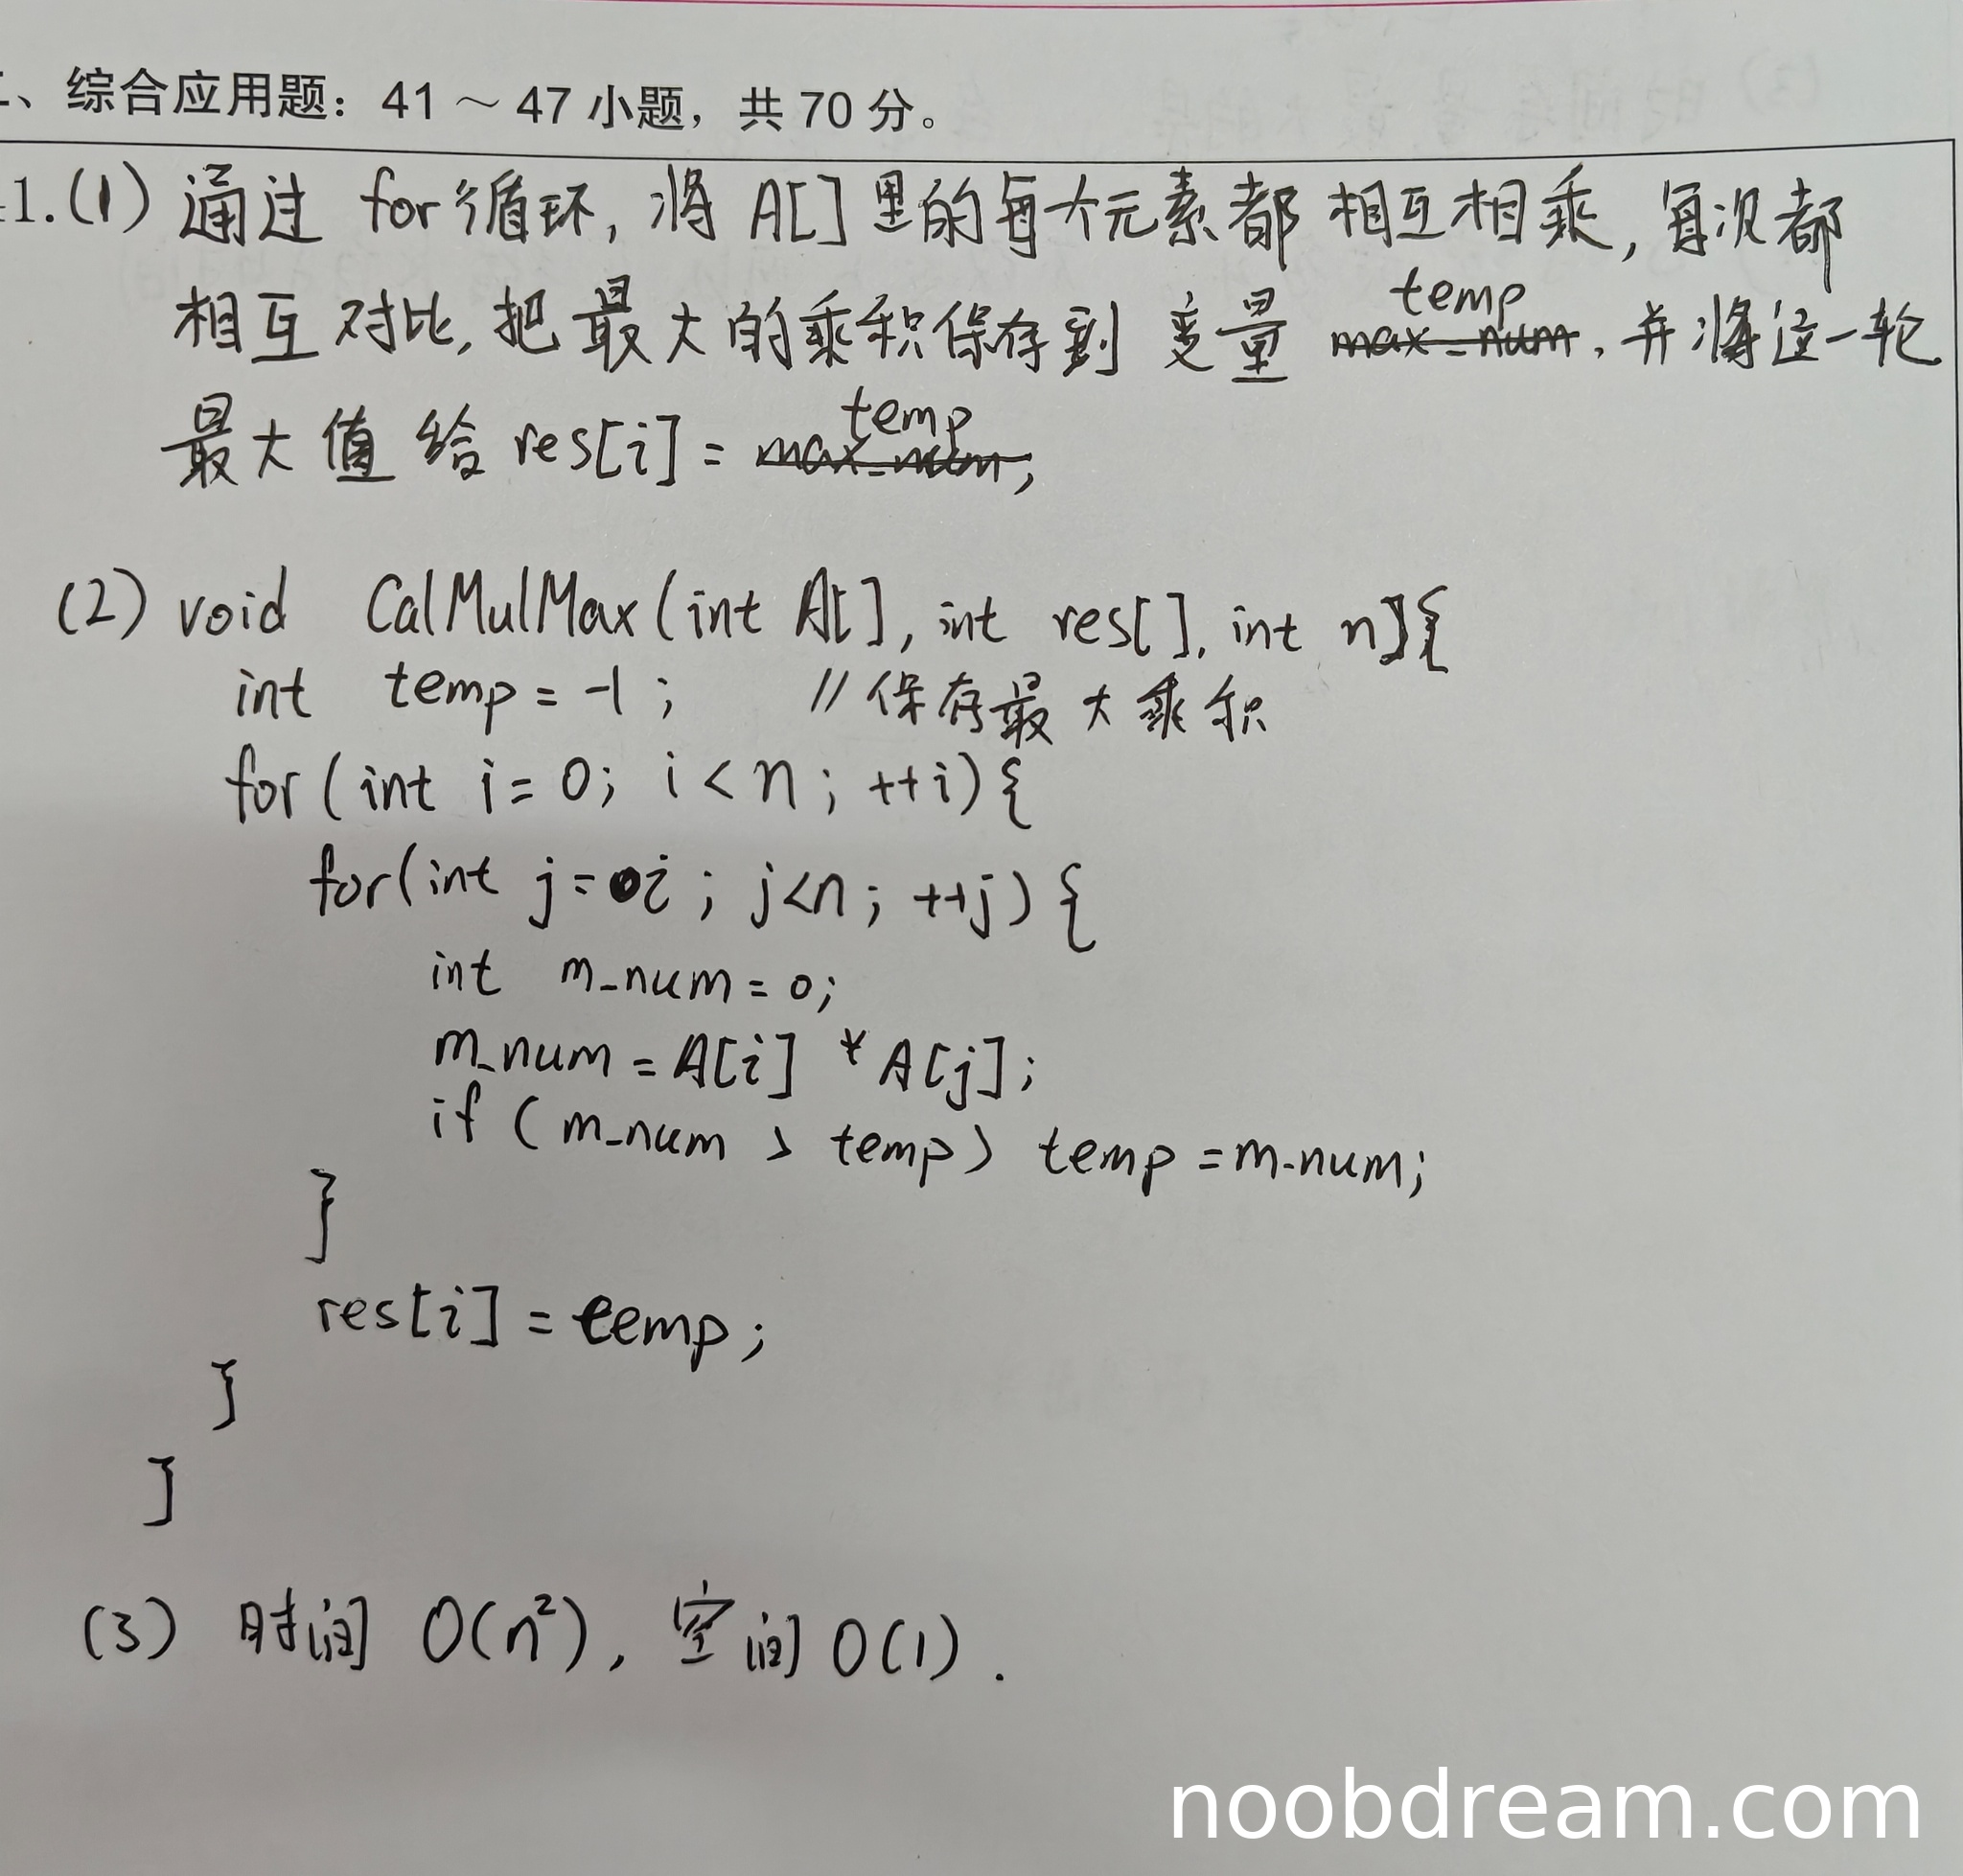 、综合应用题：41～47 小题，共 70 分。
1.(1) 通过 for循环, 将 A[] 里的每个元素都 相互相乘, 每次都
相互对比, 把最大的乘积保存到 变量 temp max_num, 并将这一轮
最大值 给 res[i] = temp max_num;
(2) void CalMulMax(int A[], int res[], int n){
int temp = -1; //保存最大乘积
for(int i=0; i<n; ++i){
for(int j=i; j<n; ++j){
int m_num=0;
m_num=A[i] *A[j];
if (m_num > temp) temp=m_num;
}
res[i] = temp;
}
}
(3) 时间 O(n²), 空间 O(1).
noobdream.com